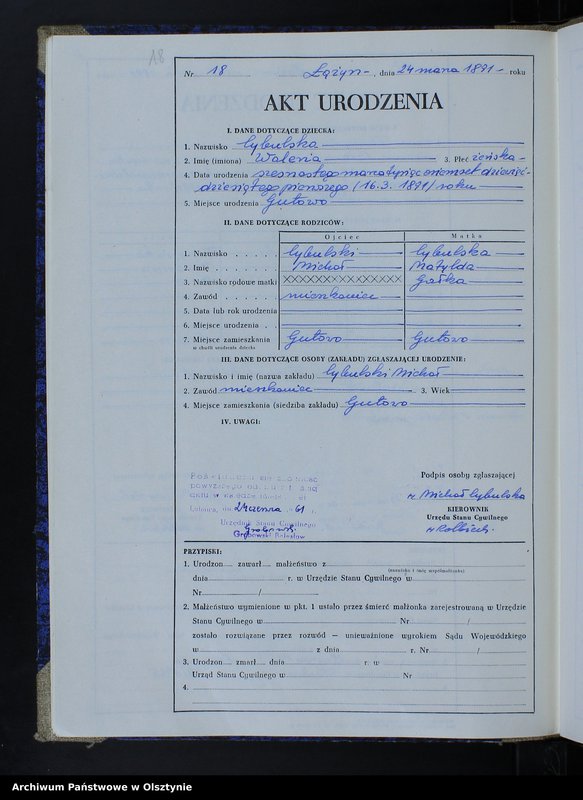 18
Nr 18 Łążyn, dnia 24 marca 1891 roku
AKT URODZENIA
I. DANE DOTYCZĄCE DZIECKA:
1. Nazwisko Cybulska
2. Imię (imiona) Waleria 3. Płeć żeńska
4. Data urodzenia szesnastego marca tysiąc osiemset dziewięć-
dziesiątego pierwszego (16.3. 1891) roku
5. Miejsce urodzenia Gutowo
II. DANE DOTYCZĄCE RODZICÓW:
Ojciec Matka
1. Nazwisko Cybulski Cybulska
2. Imię Michał Matylda
3. Nazwisko rodowe matki XXXXXXXXXXXX Gałka
4. Zawód mieszkaniec
5. Data lub rok urodzenia
6. Miejsce urodzenia
7. Miejsce zamieszkania Gutowo Gutowo
w chwili urodzenia dziecka
III. DANE DOTYCZĄCE OSOBY (ZAKŁADU) ZGŁASZAJĄCEJ URODZENIE:
1. Nazwisko i imię (nazwa zakładu) Cybulski Michał
2. Zawód mieszkaniec 3. Wiek
4. Miejsce zamieszkania (siedziba zakładu) Gutowo
IV. UWAGI:
Podpis osoby zgłaszającej
Michał Cybulska
KIEROWNIK
Urzędu Stanu Cywilnego
dn. 24 czerwca 61 r.
Urzędnik Stanu Cywilnego
Grabowski Bolesław
PRZYPISKI:
1. Urodzon zawarł małżeństwo z
(nazwisko i imię współmałżonka)
dnia r. w Urzędzie Stanu Cywilnego w
Nr /
2. Małżeństwo wymienione w pkt. 1 ustało przez śmierć małżonka zarejestrowaną w Urzędzie
Stanu Cywilnego w Nr /
zostało rozwiązane przez rozwód — unieważnione wyrokiem Sądu Wojewódzkiego
w z dnia r. Nr /
3. Urodzon zmarł dnia r. w
Urząd Stanu Cywilnego w Nr
4.
Archiwum Państwowe w Olsztynie